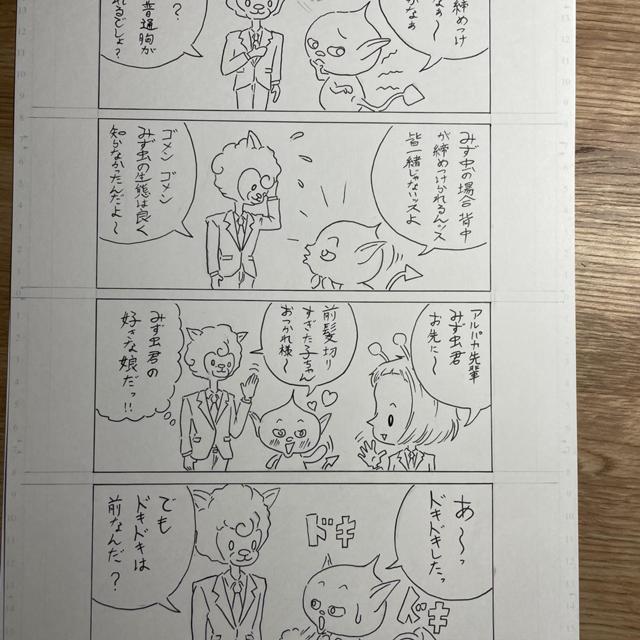 締めつけ
なぁ〜
かなぁ
？
普通胸が
れるでしょ？
みず虫の場合背中
が締めつけられるんッス
皆一緒じゃないッスよ
ゴメン ゴメン
みず虫の生態は良く
知らなかったんだよ〜
アルパカ先輩
みず虫君
お先に〜
前髪切り
すぎた子ちゃん
おつかれ様〜
みず虫君の
好きな娘だっ!!
あ〜っ
ドキドキしたっ
ドキ
ドキ
でも
ドキドキは
前なんだ？